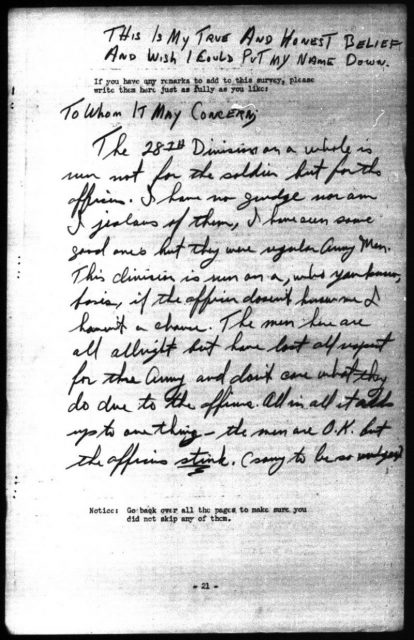 THIS IS MY TRUE AND HONEST BELIEF
AND WISH I COULD PUT MY NAME DOWN.
If you have any remarks to add to this survey, please
write them here just as fully as you like:
TO WHOM IT MAY CONCERN,
The 28th Division on a whole is
run not for the soldier but for the
officers. I have no grudge nor am
I jealous of them, I have seen some
good ones but they were regular Army Men.
This division is run on a, who you know,
basis, if the officer doesn't know me I
haven't a chance. The men here are
all allright but have lost all respect
for the Army and don't care what they
do due to the officers. All in all it adds
up to one thing - the men are O.K. but
the officers stink. (sorry to be so
Notice: Go back over all the pages to make sure you
did not skip any of them.
- 21 -